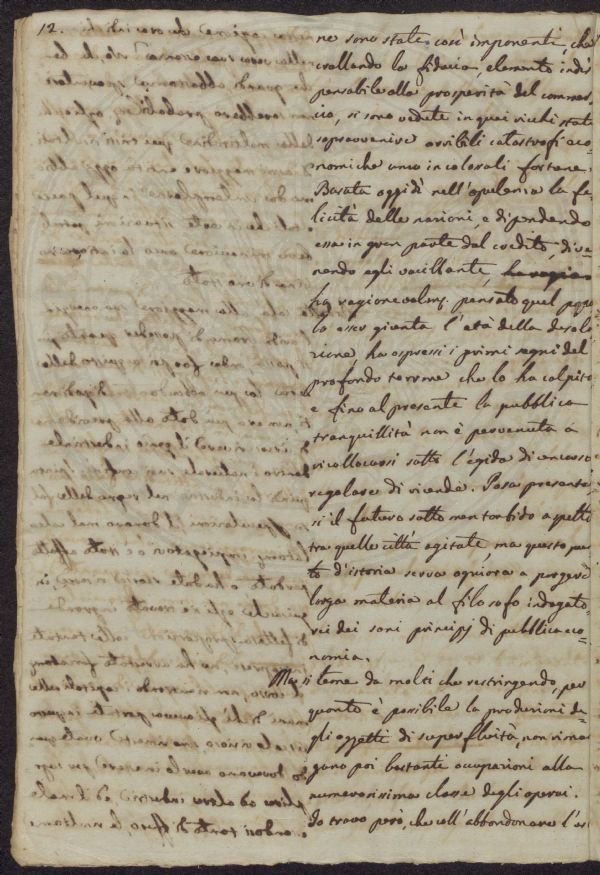 12.
ne sono state così imponenti, che
crollando la fiducia, elemento indi-
spensabile alla prosperità del commer-
cio, si sono vedute in quei ricchi stati
sopravvenire orribili catastrofi eco-
nomiche anco in colossali fortune.
Basata oggidì nell'opulenza la fe-
licità delle nazioni e dipendendo
essa in gran parte dal credito, dive-
nendo egli vacillante,
ha ragionevolmẽ. pensato quel popo-
lo esser giunta l'età della desola-
zione, ha espressi i primi segni del
profondo terrore che lo ha colpito
e fino al presente la pubblica
tranquillità non è pervenuta a
ricollocarsi sotto l'egida di un corso
regolare di vicende. Possa presentar-
si il futuro sotto men torbido aspetto
tra quelle città agitate, ma questo pun-
to d'istoria serva ognora a porgere
larga materia al filosofo indagato-
re dei sani principj di pubblica eco-
nomia.
Ma si teme da molti che restringendo, per
quanto è possibile la produzioni de-
gli oggetti di superfluità, non riman-
gano poi bastanti occupazioni alla
numerosissima classe degli operai.
Io trovo però, che coll'abbandonare l'es